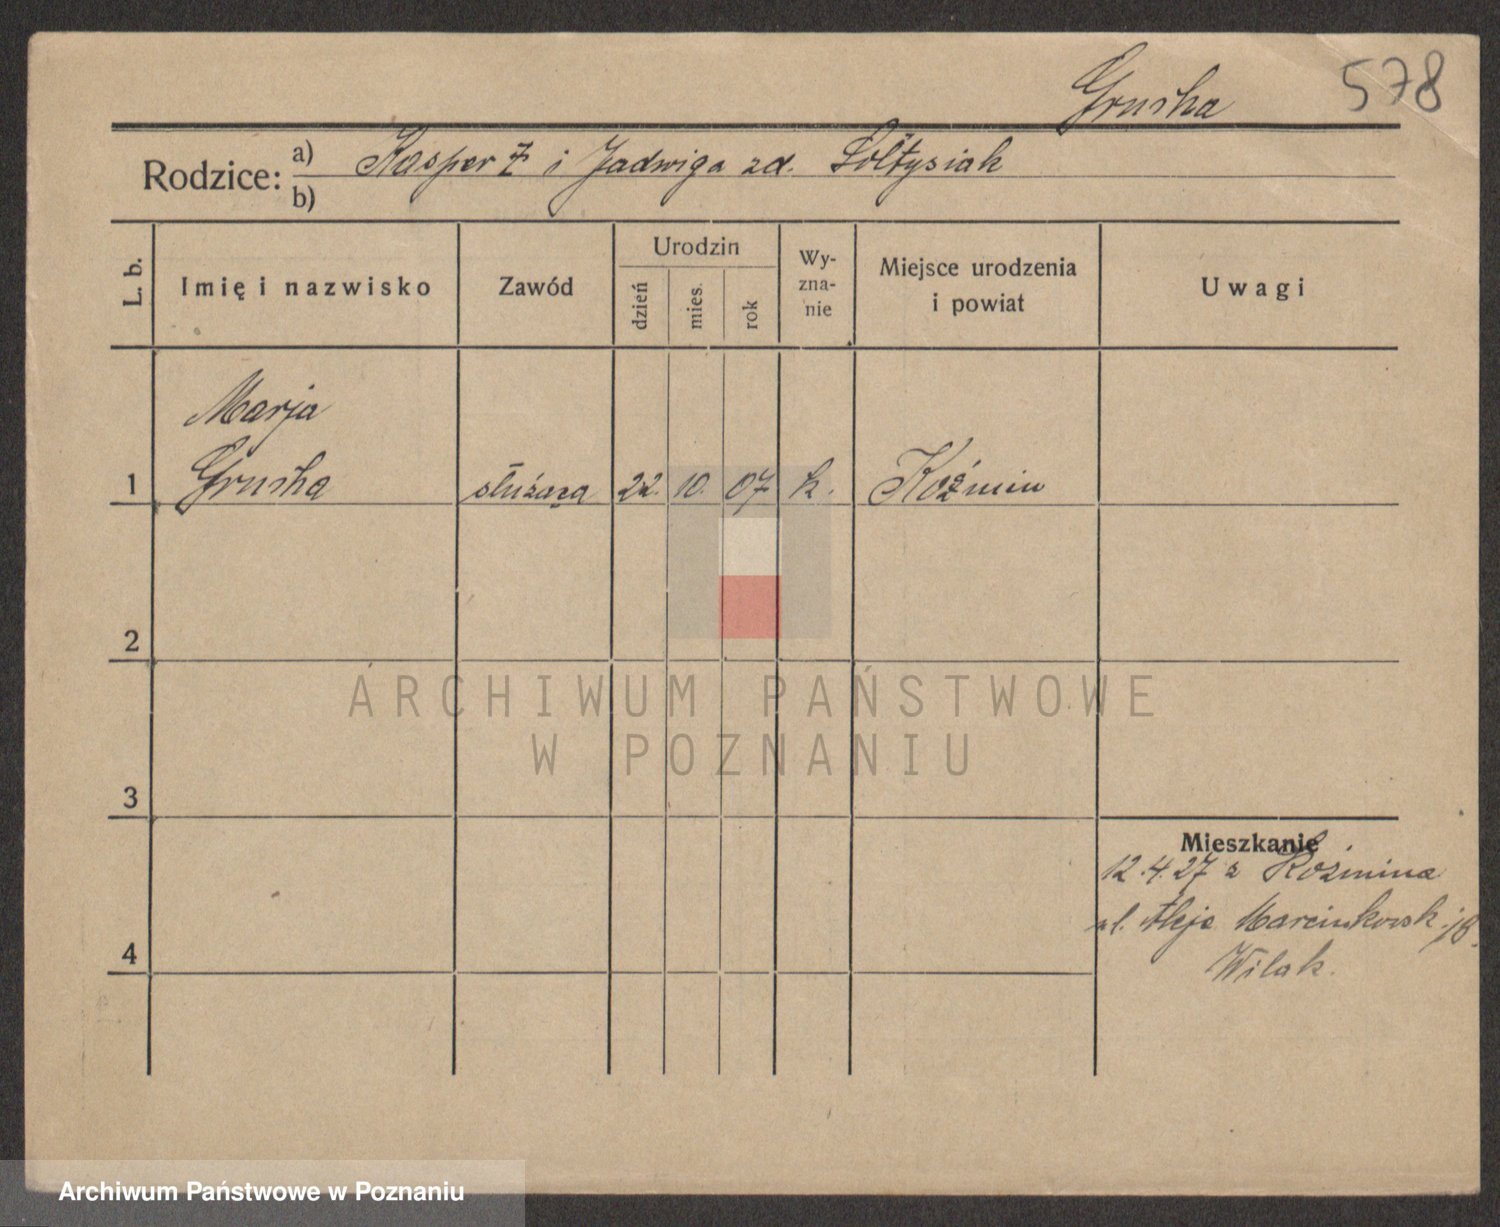 578
Gruśka
Rodzice: a) Kasper Ż i Jadwiga zd. Sołtysiak
b)
L. b.
Imię i nazwisko
Zawód
Urodzin
dzień
mies.
rok
Wy-
zna-
nie
Miejsce urodzenia
i powiat
Uwagi
Marja
1 Gruśka służąca 22. 10. 07 k. Koźmin
2
ARCHIWUM PAŃSTWOWE
W POZNANIU
3
Mieszkanie
12.4.27 z Koźmina
ul. Aleje Marcinkowsk. 18.
4
Wilak.
Archiwum Państwowe w Poznaniu